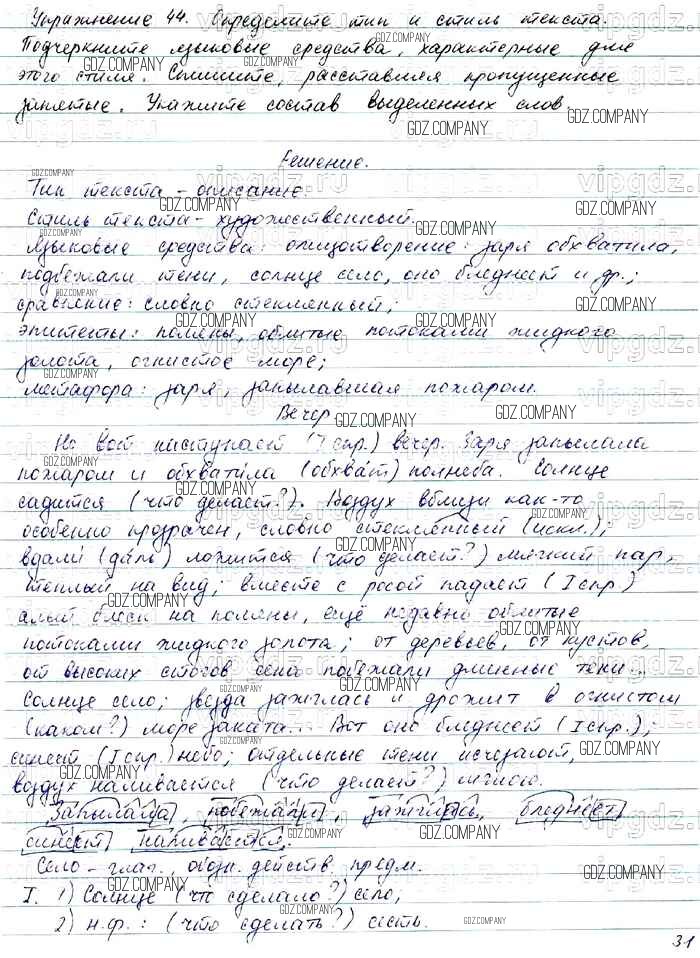 Упражнение 44. Определите тип и стиль текста.
Подчеркните языковые средства, характерные для
этого стиля. Спишите, расставляя пропущенные
запятые. Укажите состав выделенных слов.
Решение.
Тип текста – описание.
Стиль текста – художественный.
Языковые средства: олицетворение: заря обхватила,
подбежали тени, солнце село, оно бледнеет и др.;
сравнение: словно стеклянный;
эпитеты: поляны, облитые потоками жидкого
золота, огнистое море;
метафора: заря, запылавшая пожаром.
Вечер
Но вот наступает (I спр.) вечер. Заря запылала
пожаром и обхватила (обхват) полнеба. Солнце
садится (что делает?). Воздух вблизи как-то
особенно прозрачен, словно стеклянный (искл.);
вдали (даль) ложится (что делает?) мягкий пар,
теплый на вид; вместе с росой падает (I спр.)
алый блеск на поляны, ещё недавно облитые
потоками жидкого золота; от деревьев, от кустов,
от высоких стогов сена побежали длинные тени...
Солнце село; звезда зажглась и дрожит в огнистом
(каком?) море заката... Вот оно бледнеет (I спр.);
синеет (I спр.) небо; отдельные тени исчезают,
воздух наливается (что делает?) мглою.
Запылала, побежали, зажглась, бледнеет,
синеет, наливается.
Село – глаг., обозн. действ. предм.
I. 1) Солнце (что сделало?) село,
2) н.ф.: (что сделать?) сесть.
31